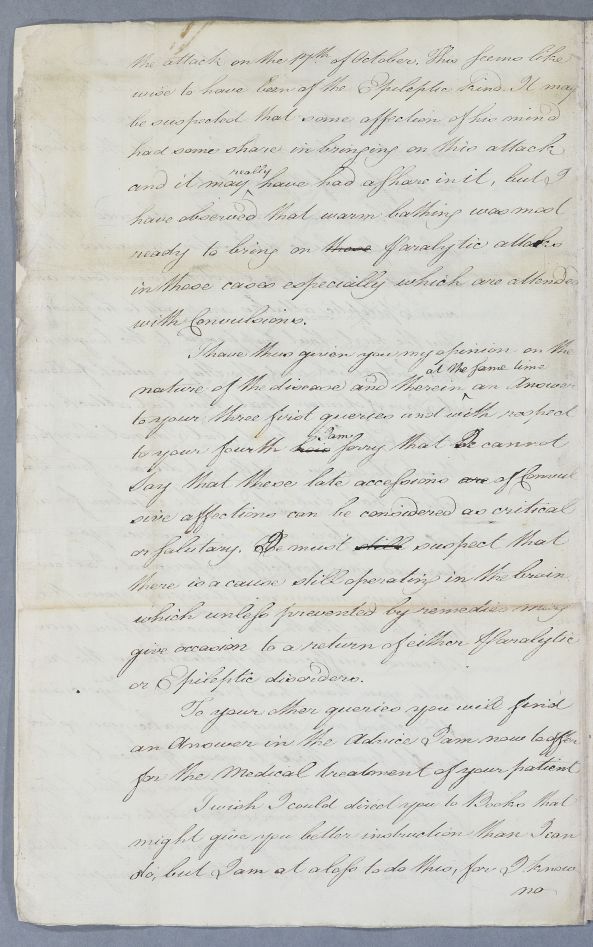 the attack on the 17th of October. This seems like
wise to have been of the Epileptic kind. It may
be suspected that some affection of his mind
had some share in bringing on this attack
and it may really have had a share in it, but I
have observed that warm bathing was most
ready to bring on those Paralytic attacks
in those cases especially which are attended
with Convulsions.
I have thus given you my opinion on the
nature of the disease and therein at the same time an Answer
to your three first queries and with respect
to your fourth I am sorry that I cannot
say that these late accessions are of Convul
sive affections can be considered as critical
or salutary. I must still suspect that
there is a cause still operating in the brain
which unless prevented by remedies may
give occasion to a return of either Paralytic
or Epileptic disorders.
To your other queries you will find
an Answer in the Advice I am now to offer
for the Medical treatment of your patient
I wish I could direct you to Books that
might give you better instruction than I can
do, but I am at a loss to do this, for I know
no